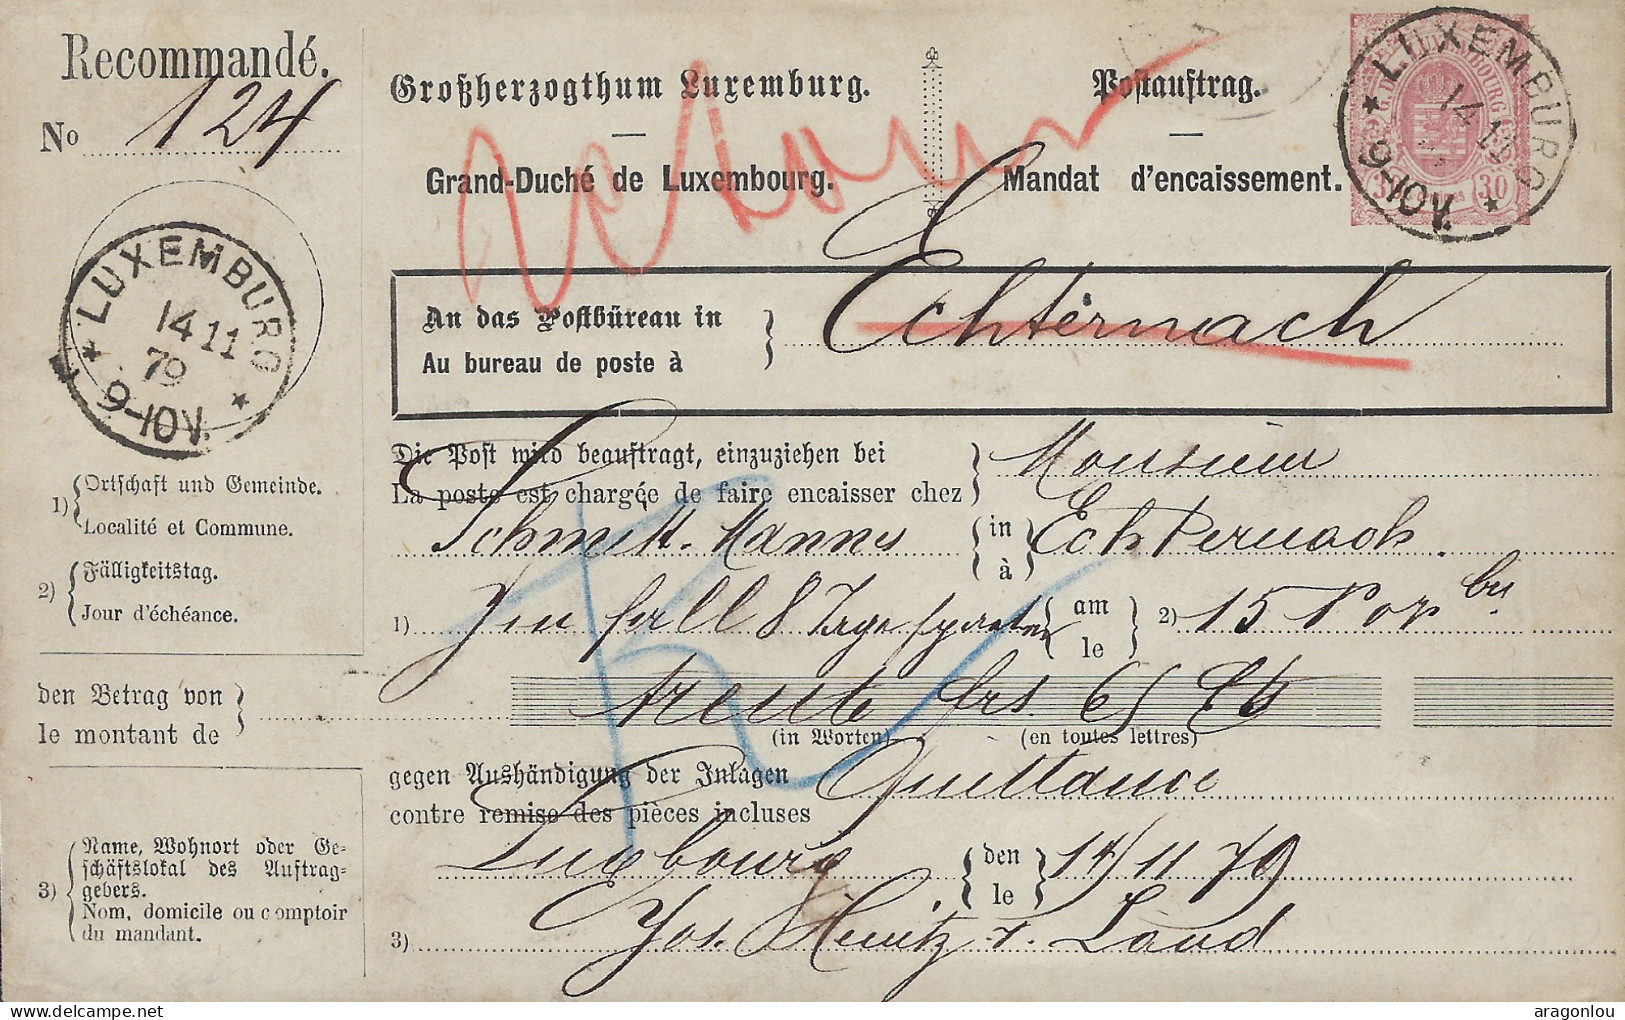 Recommandé.
No 124
Großherzogthum Luxemburg.
Postauftrag.
retour
Grand-Duché de Luxembourg.
Mandat d'encaissement.
LUXEMBURG
14 11
9-10V.
30
LUXEMBURG
14 11
79
9-10V.
An das Postbüreau in
Au bureau de poste à
Echternach
Die Post wird beauftragt, einzuziehen bei
La poste est chargée de faire encaisser chez
Monsieur
Schmitt-Mannes
in
à
Echternach.
1) Ortschaft und Gemeinde.
Localité et Commune.
2) Fälligkeitstag.
Jour d'échéance.
1) fall 8 Tage
am
le
2) 15
den Betrag von
le montant de
trente frs. 65 Cts
(in Worten)
(en toutes lettres)
gegen Aushändigung der Inlagen
contre remise des pièces incluses
Quittance
3) Name, Wohnort oder Ge-
schäftslokal des Auftrag-
gebers.
Nom, domicile ou comptoir
du mandant.
Luxbourg
den
le
14/11 79
3) Jos.
aragonlou